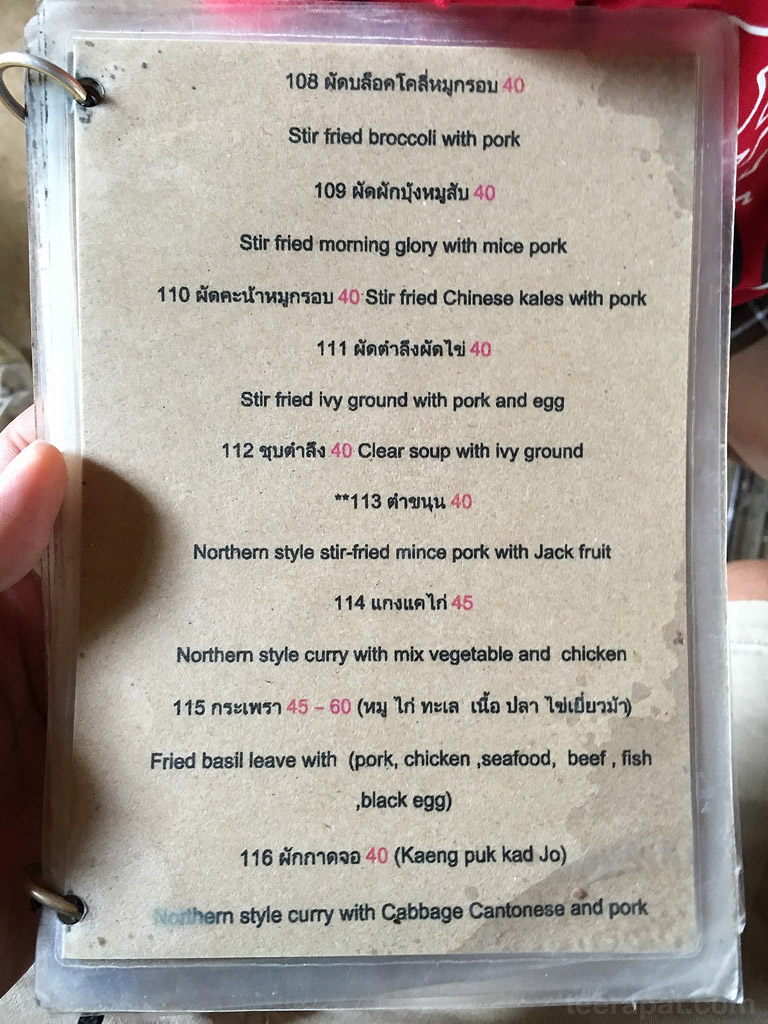 108 ผัดบล็อคโคลี่หมูกรอบ 40
Stir fried broccoli with pork
109 ผัดผักบุ้งหมูสับ 40
Stir fried morning glory with mice pork
110 ผัดคะน้าหมูกรอบ 40 Stir fried Chinese kales with pork
111 ผัดตำลึงผัดไข่ 40
Stir fried ivy ground with pork and egg
112 ซุบตำลึง 40 Clear soup with ivy ground
**113 ตำขนุน 40
Northern style stir-fried mince pork with Jack fruit
114 แกงแคไก่ 45
Northern style curry with mix vegetable and chicken
115 กระเพรา 45 – 60 (หมู ไก่ ทะเล เนื้อ ปลา ไข่เยี่ยวม้า)
Fried basil leave with (pork, chicken ,seafood, beef , fish
,black egg)
116 ผักกาดจอ 40 (Kaeng puk kad Jo)
Northern style curry with Cabbage Cantonese and pork
teerapat.com